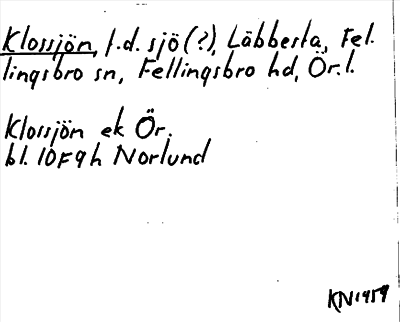 Klossjön, f.d. sjö(?), Läbbesta, Fel-
lingsbro sn, Fellingsbro hd, Ör. l.
Klossjön ek Ör.
bl. 10F9h Norlund
KN1959